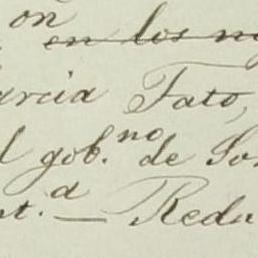 on
en los
arcia Tato,
l gob.no de
nt.a — Redu